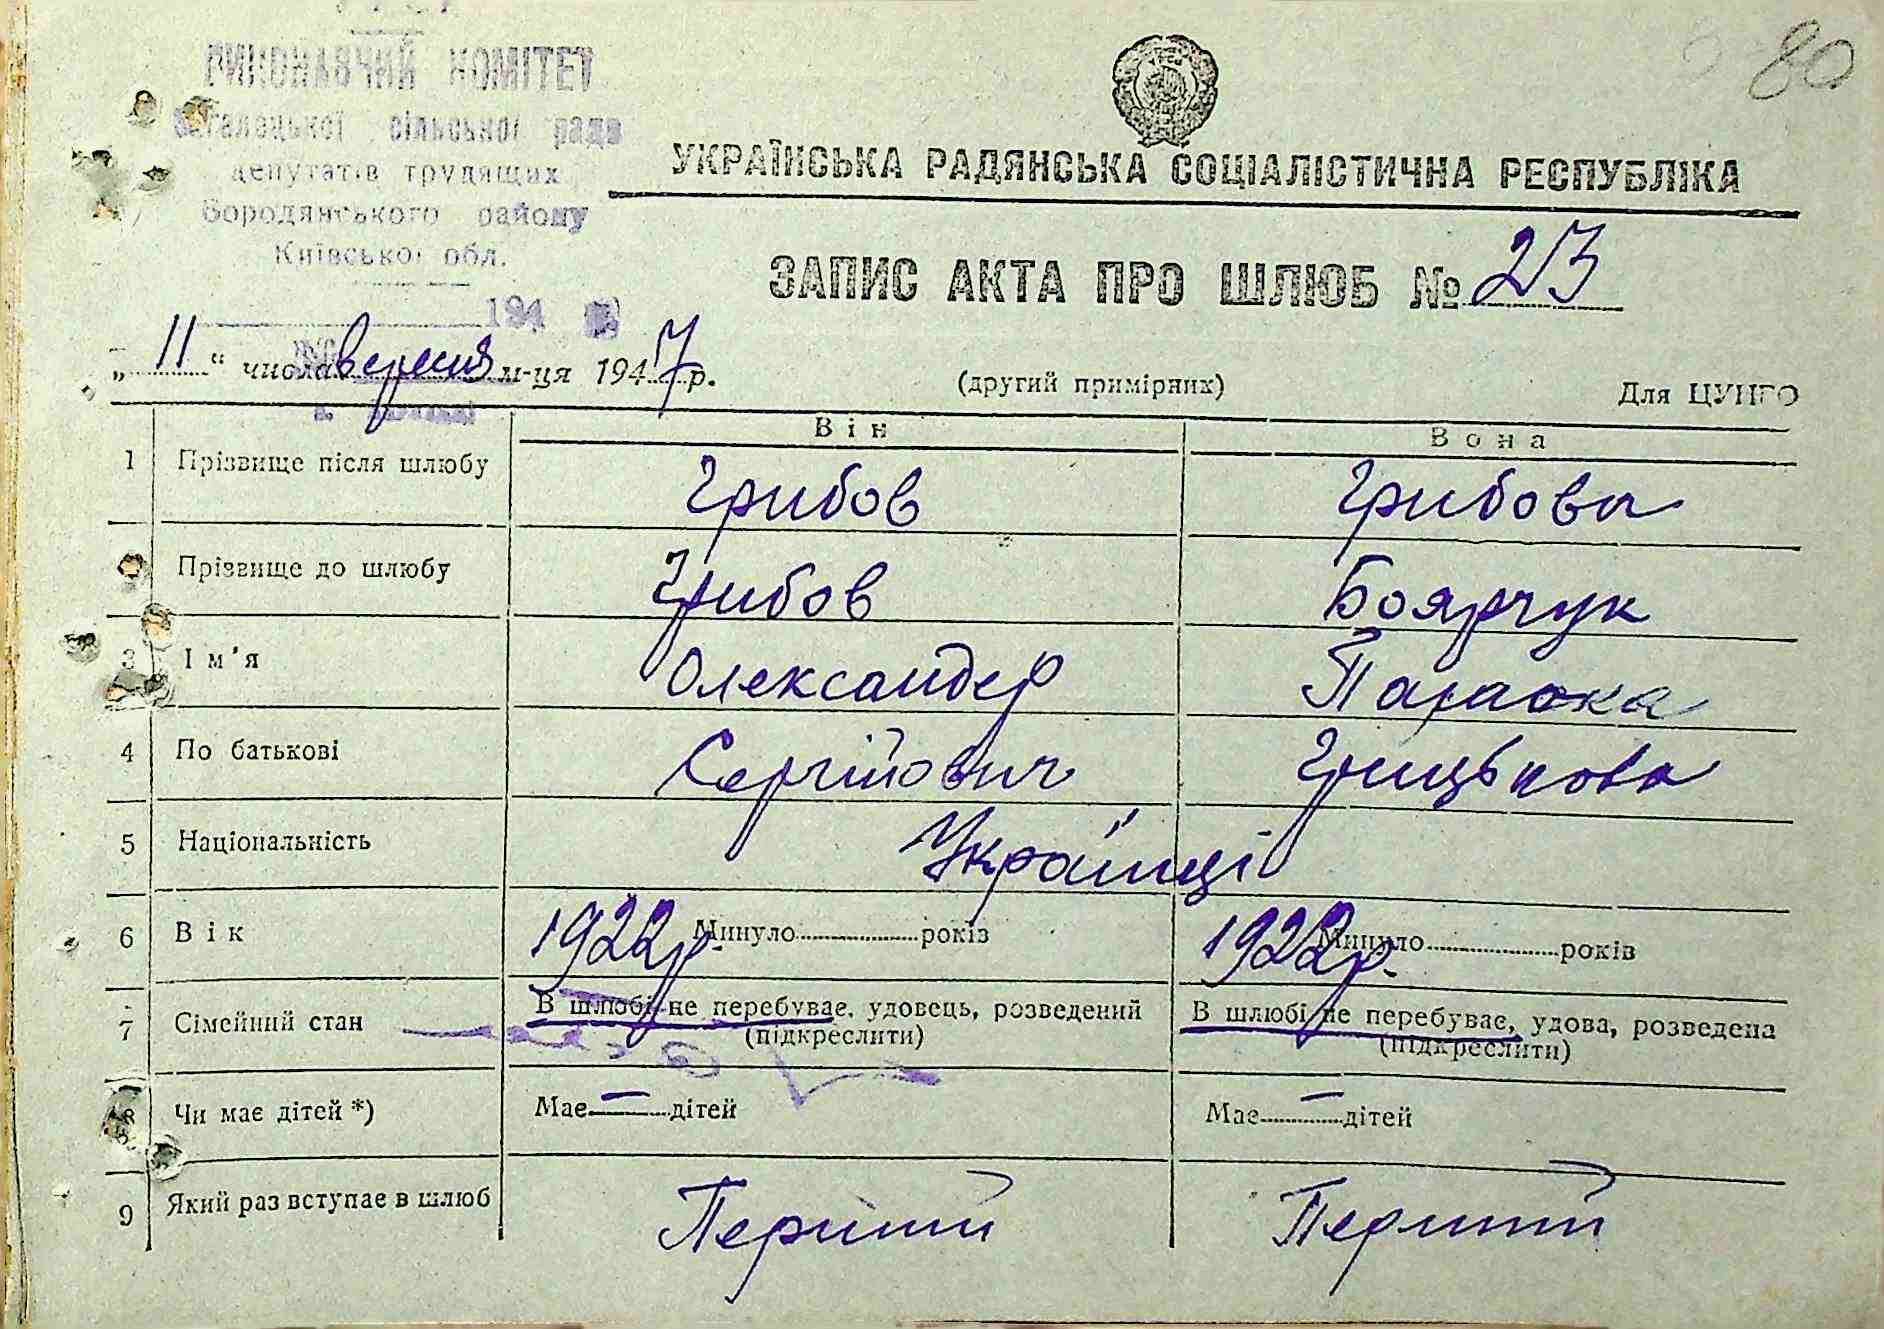 80
ВИКОНАВЧИЙ КОМІТЕТ
сільської ради
депутатів трудящих
Бородянського району
Київської обл.
194
УКРАЇНСЬКА РАДЯНСЬКА СОЦІАЛІСТИЧНА РЕСПУБЛІКА
ЗАПИС АКТА ПРО ШЛЮБ № 23
„ 11 “ числа вересня м-ця 1947 р.
(другий примірник)
Для ЦУНГО
Він Вона
1 Прізвище після шлюбу Грибов Грибова
Прізвище до шлюбу Грибов Боярчук
3 Ім'я Олександер Параска
4 По батькові Сергійович Грицькова
5 Національність Українці
6 Вік 1922р. Минуло років 1922р. Минуло років
7 Сімейний стан В шлюбі не перебуває, удовець, розведений В шлюбі не перебуває, удова, розведена
(підкреслити) (підкреслити)
8 Чи має дітей *) Має — дітей Має — дітей
9 Який раз вступає в шлюб Перший Перший